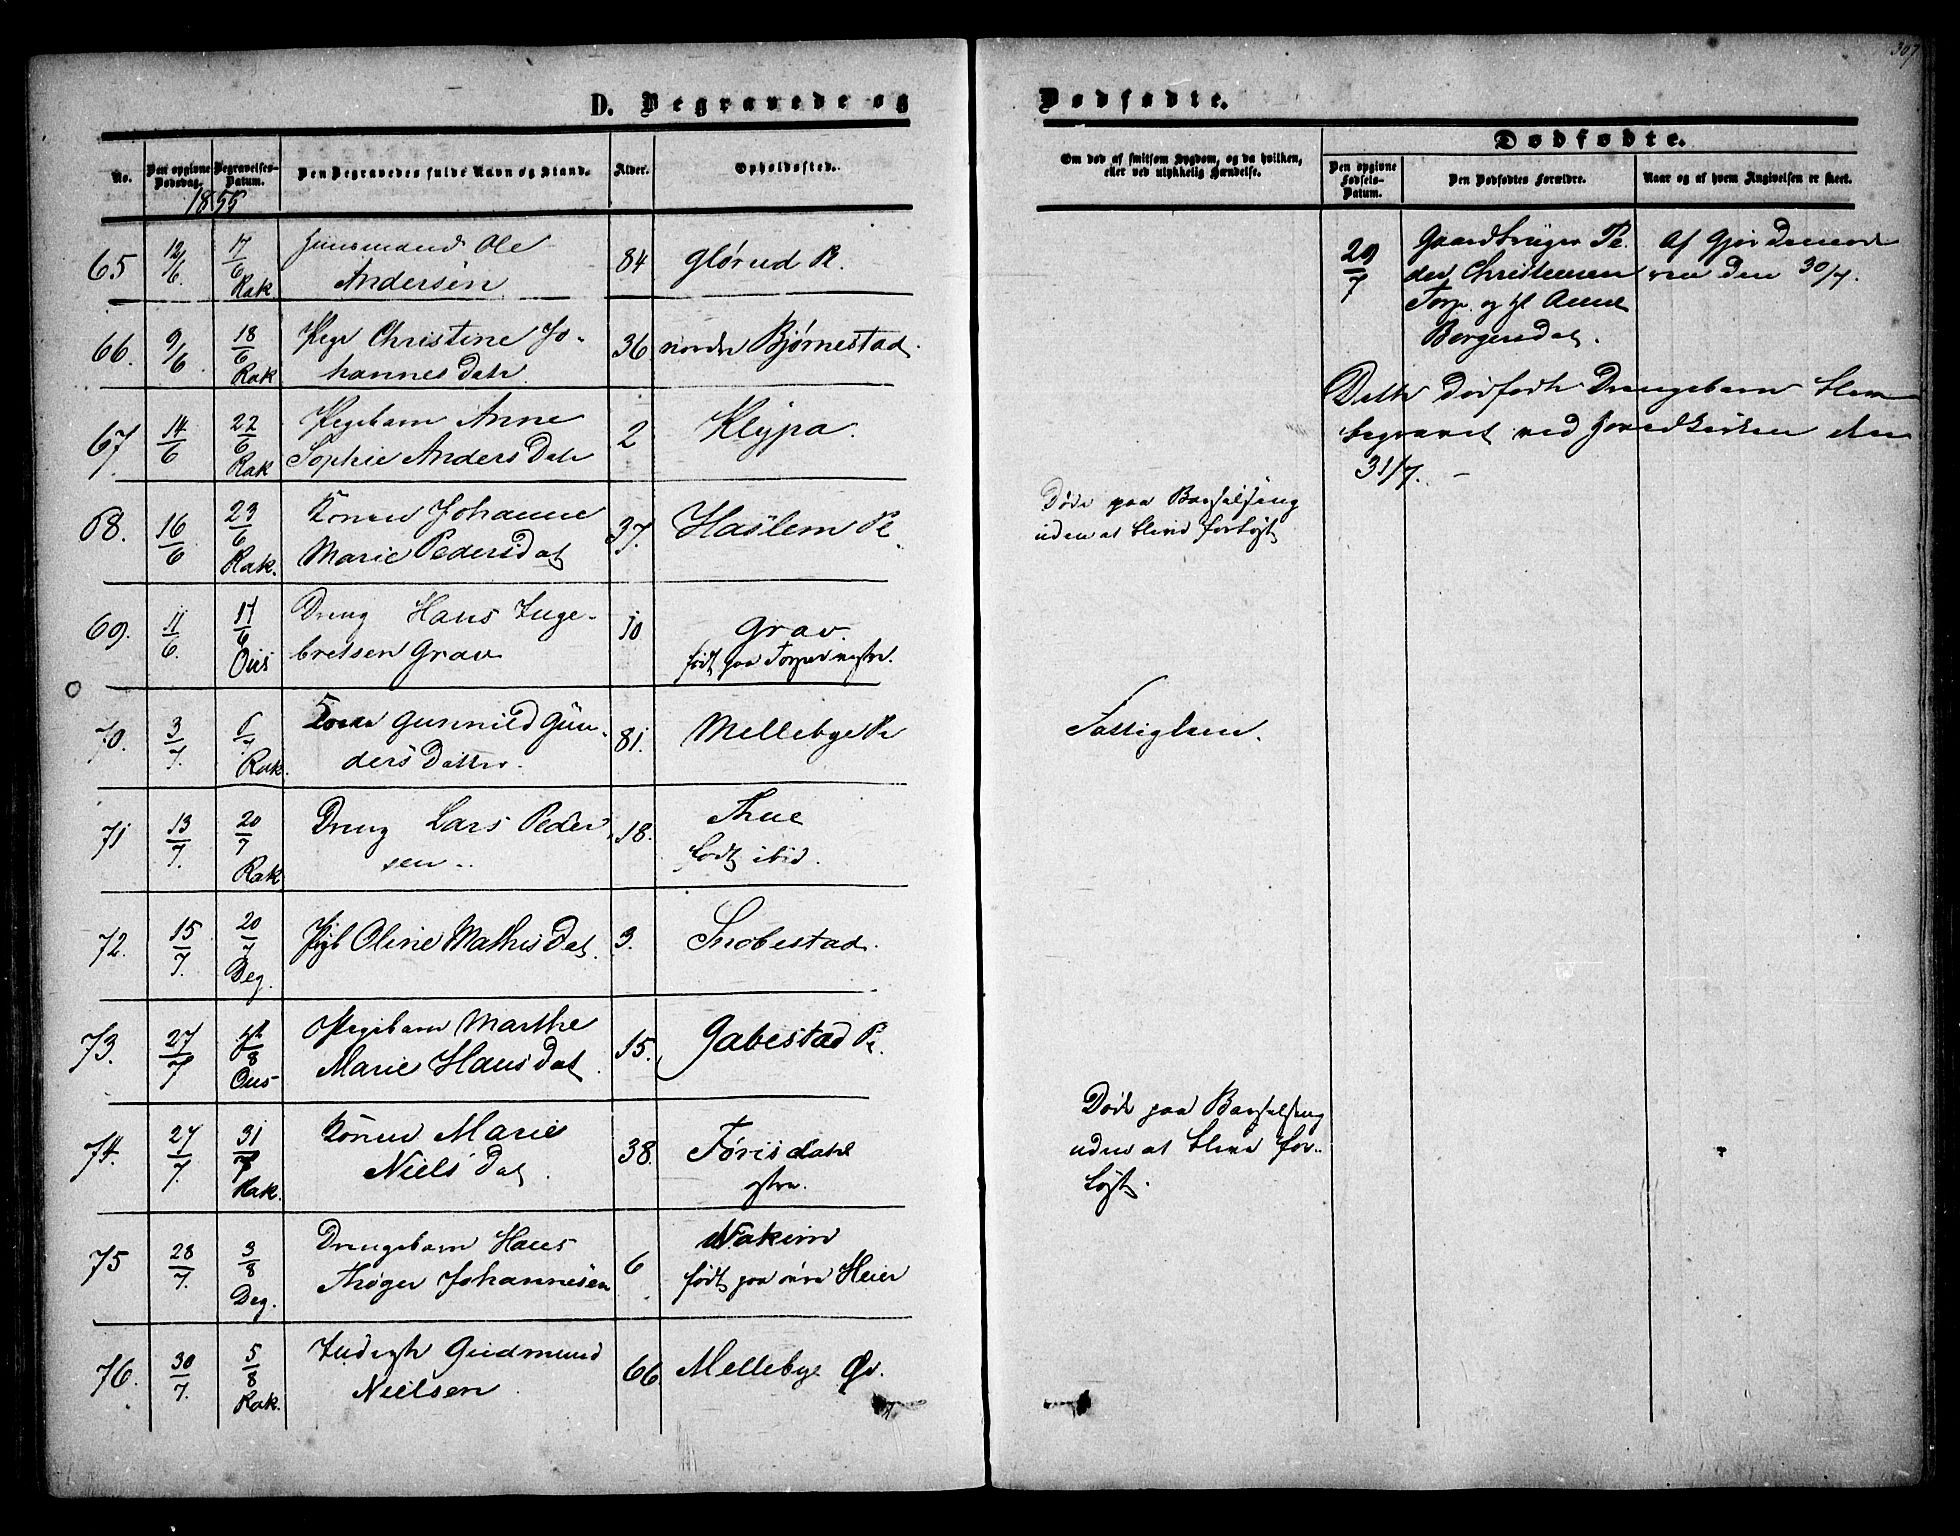 307
D. Begravede og Dødfødte.
No. Den opgivne Dødsdag. Begravelses-Datum. Den Begravedes fulde Navn og Stand. Alder. Opholdssted.
Om død af smitsom Sygdom, og da hvilken, eller ved ulykkelig Hændelse.
Dødfødte.
Den opgivne Fødsels-Datum. Den Dødfødtes Forældre. Naar og af hvem Angivelsen er skeet.
1855
65 12/6. 17/6 Rak Huusmand Ole
Andersen 84 Glørud P.
66. 9/6 18/6 Rak Pige Christine Jo-
hannes Datr 36 nordre Bjørnestad.
67. 14/6 22/6 Rak Pigebarn Anne
Sophie Anders Datr 2 Klÿpa.
68. 16/6 23/6 Rak. Konen Johanne
Marie Pedersdat 37. Haslem Pl.
Døde paa Barselseng
uden at blive forløst
69. 11/6. 17/6 Ous Dreng Hans Inge-
bretsen Grav 10 Grav.
født paa Torper vestre.
70. 3/7. 6/7 Rak. Gunnild Gun-
ders Datter. 81. Mellebye Pl
Fattiglem.
71 13/7. 20/7 Rak Dreng Lars Peder
sen.. 18. Thue
født ibid.
72. 15/7. 20/7 Deg. Pigb Oline Mathis Dat. 3. Snobestad.
73. 27/7 /8 Ous Pigebarn Marthe
Marie Hans Dat. 15. Gabestad Pl.
74. 27/7. 31/7 Rak. Konen Marie
Niels Dat. 38. Førisdahl
østre.
Døde paa Barselseng
uden at blive for-
løst.
75 28/7. 3/8 Deg. Drengebarn Hans
Thøger Johannesen 6. Nakim
født paa øvre Heier
76. 30/7. 5/8 Rak. Inderste Gudmund
Nielsen 66. Mellebye Øv.
29/7 Gaardbruger Pe-
der Christensen
Torp. og H. Anne
Borgersdat.
Af Gjordemode-
ren den 30/7.
Dette dødfødte Drengebarn blev
begravet ved Hovedkirken den
31/7. -